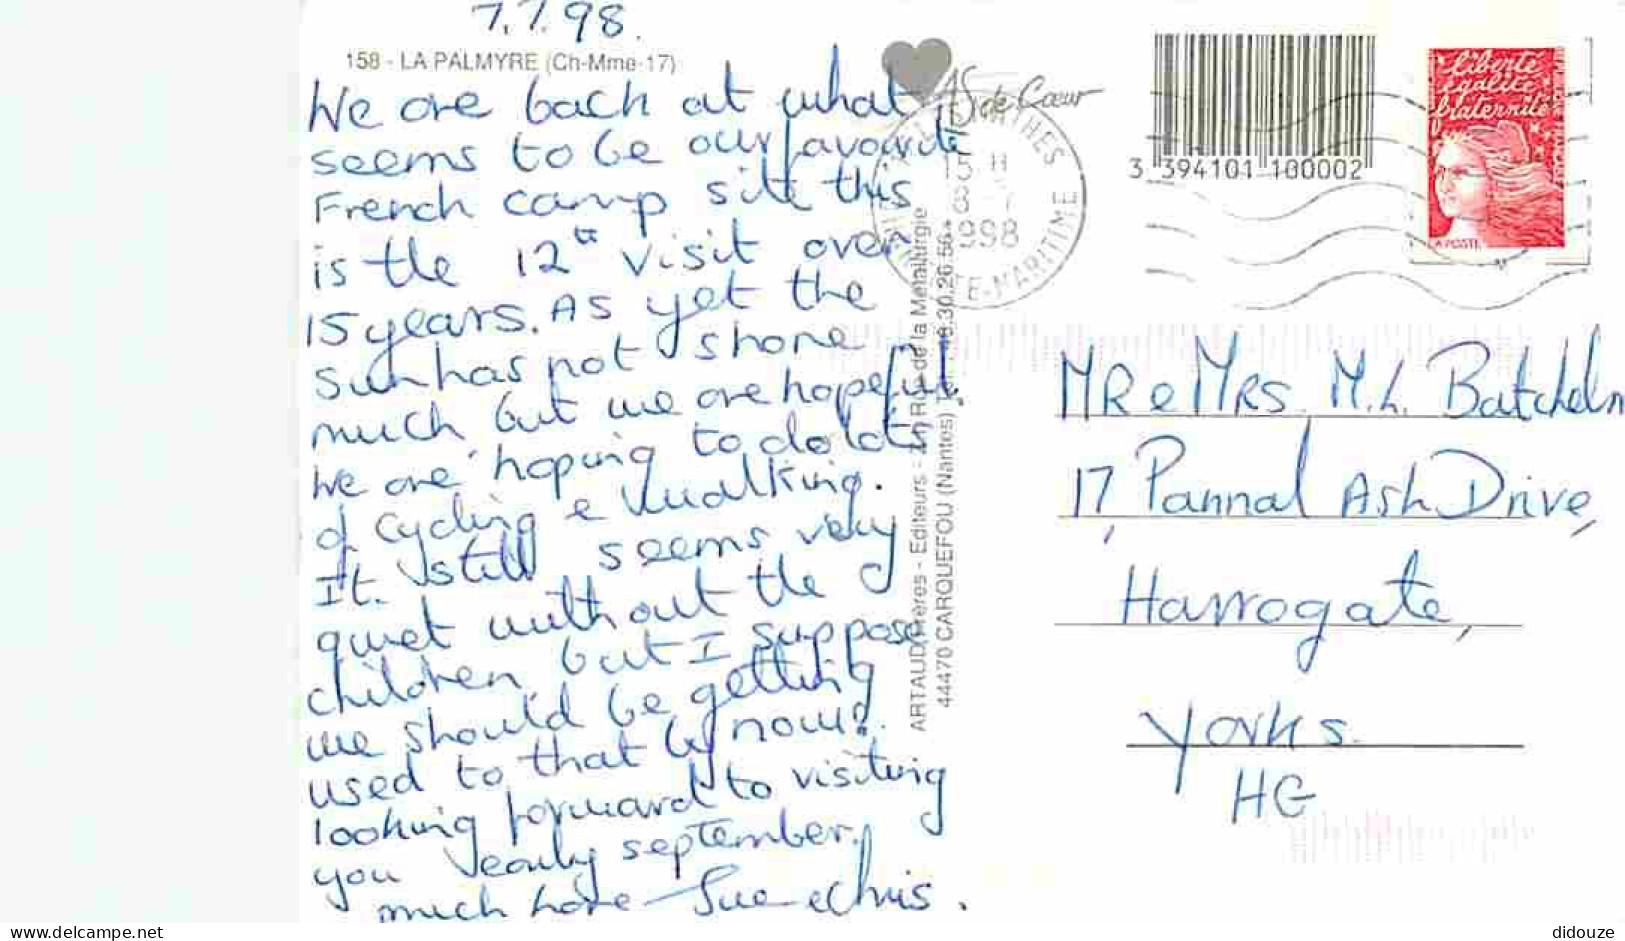 7.7.98.
158 - LA PALMYRE (Ch-Mme-17)
We are back at what
seems to be our favourite
French camp site this
is the 12th visit over
15 years. As yet the
sun has not shone
much but we are hopeful.
We are hoping to do lots
of cycling & walking.
It still seems very
quiet without the
children but I suppose
we should be getting
used to that by now!
looking forward to visiting
you early september.
much love Sue & Chris.
As de Cœur
ARTAUD Frères - Editeurs - Rue de la Métallurgie
44470 CARQUEFOU (Nantes)
15 H
8 - 7
1998
TE-MARITIME
3 394101 100002
liberté
égalité
fraternité
LA POSTE
MR & MRS. M.L. Batchelor
17, Pannal Ash Drive,
Harrogate,
Yorks.
HG
delcampe.net
didouze